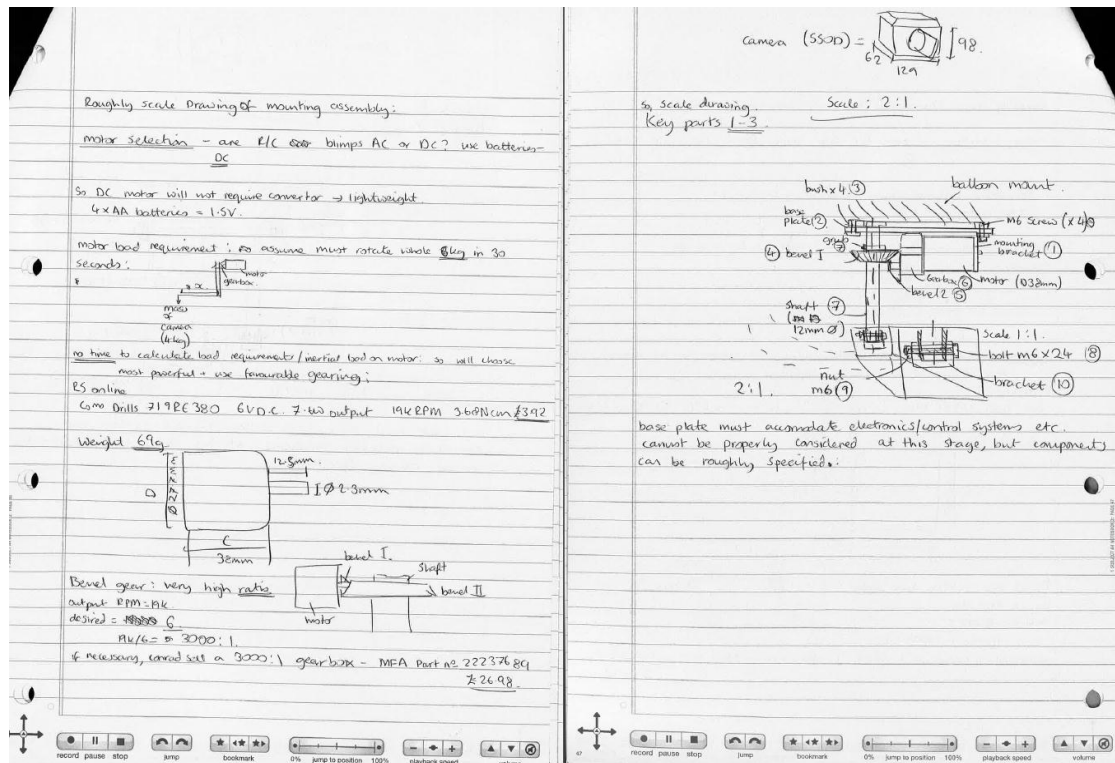 Roughly scale Drawing of mounting assembly:
motor selection - are R/C blimps AC or DC? use batteries-
DC
So DC motor will not require convertor → lightweight.
4xAA batteries = 1.5V.
motor load requirement: assume must rotate whole 6kg in 30
seconds:
motor
gearbox
x
mass
of
camera
(4kg)
no time to calculate load requirements/inertial load on motor: so will choose
most powerful + use favourable gearing:
RS online
Como Drills 719RE380 6V D.C. output 19K RPM £3.92
Weight 69g
12.5mm.
D
Ø 2.3mm
C
38mm
bevel I.
shaft
bevel II
motor
Bevel gear: very high ratio
output RPM = 19k
desired = 6
19k/6 = 3000:1.
if necessary, conrad sell a 3000:1 gearbox - MFA Part no 22237689
£26.98.
record pause stop
jump
bookmark
0% jump to position 100%
playback speed
volume
camera (SSOD) =
98.
62
129
so, scale drawing. Scale: 2:1.
Key parts 1-3.
bush x 4 ③
balloon mount.
base
plate ②
M6 screws (x4)
mounting
bracket ①
④ bevel I
Gearbox ⑥
motor (Ø38mm)
bevel 2 ⑤
shaft ⑦
12mm Ø)
Scale 1:1.
bolt m6x24 ⑧
nut
m6 ⑨
bracket ⑩
2:1.
base plate must accomodate electronics/control systems etc.
cannot be properly considered at this stage, but components
can be roughly specified.:
47
record pause stop
jump
bookmark
0% jump to position 100%
playback speed
volume